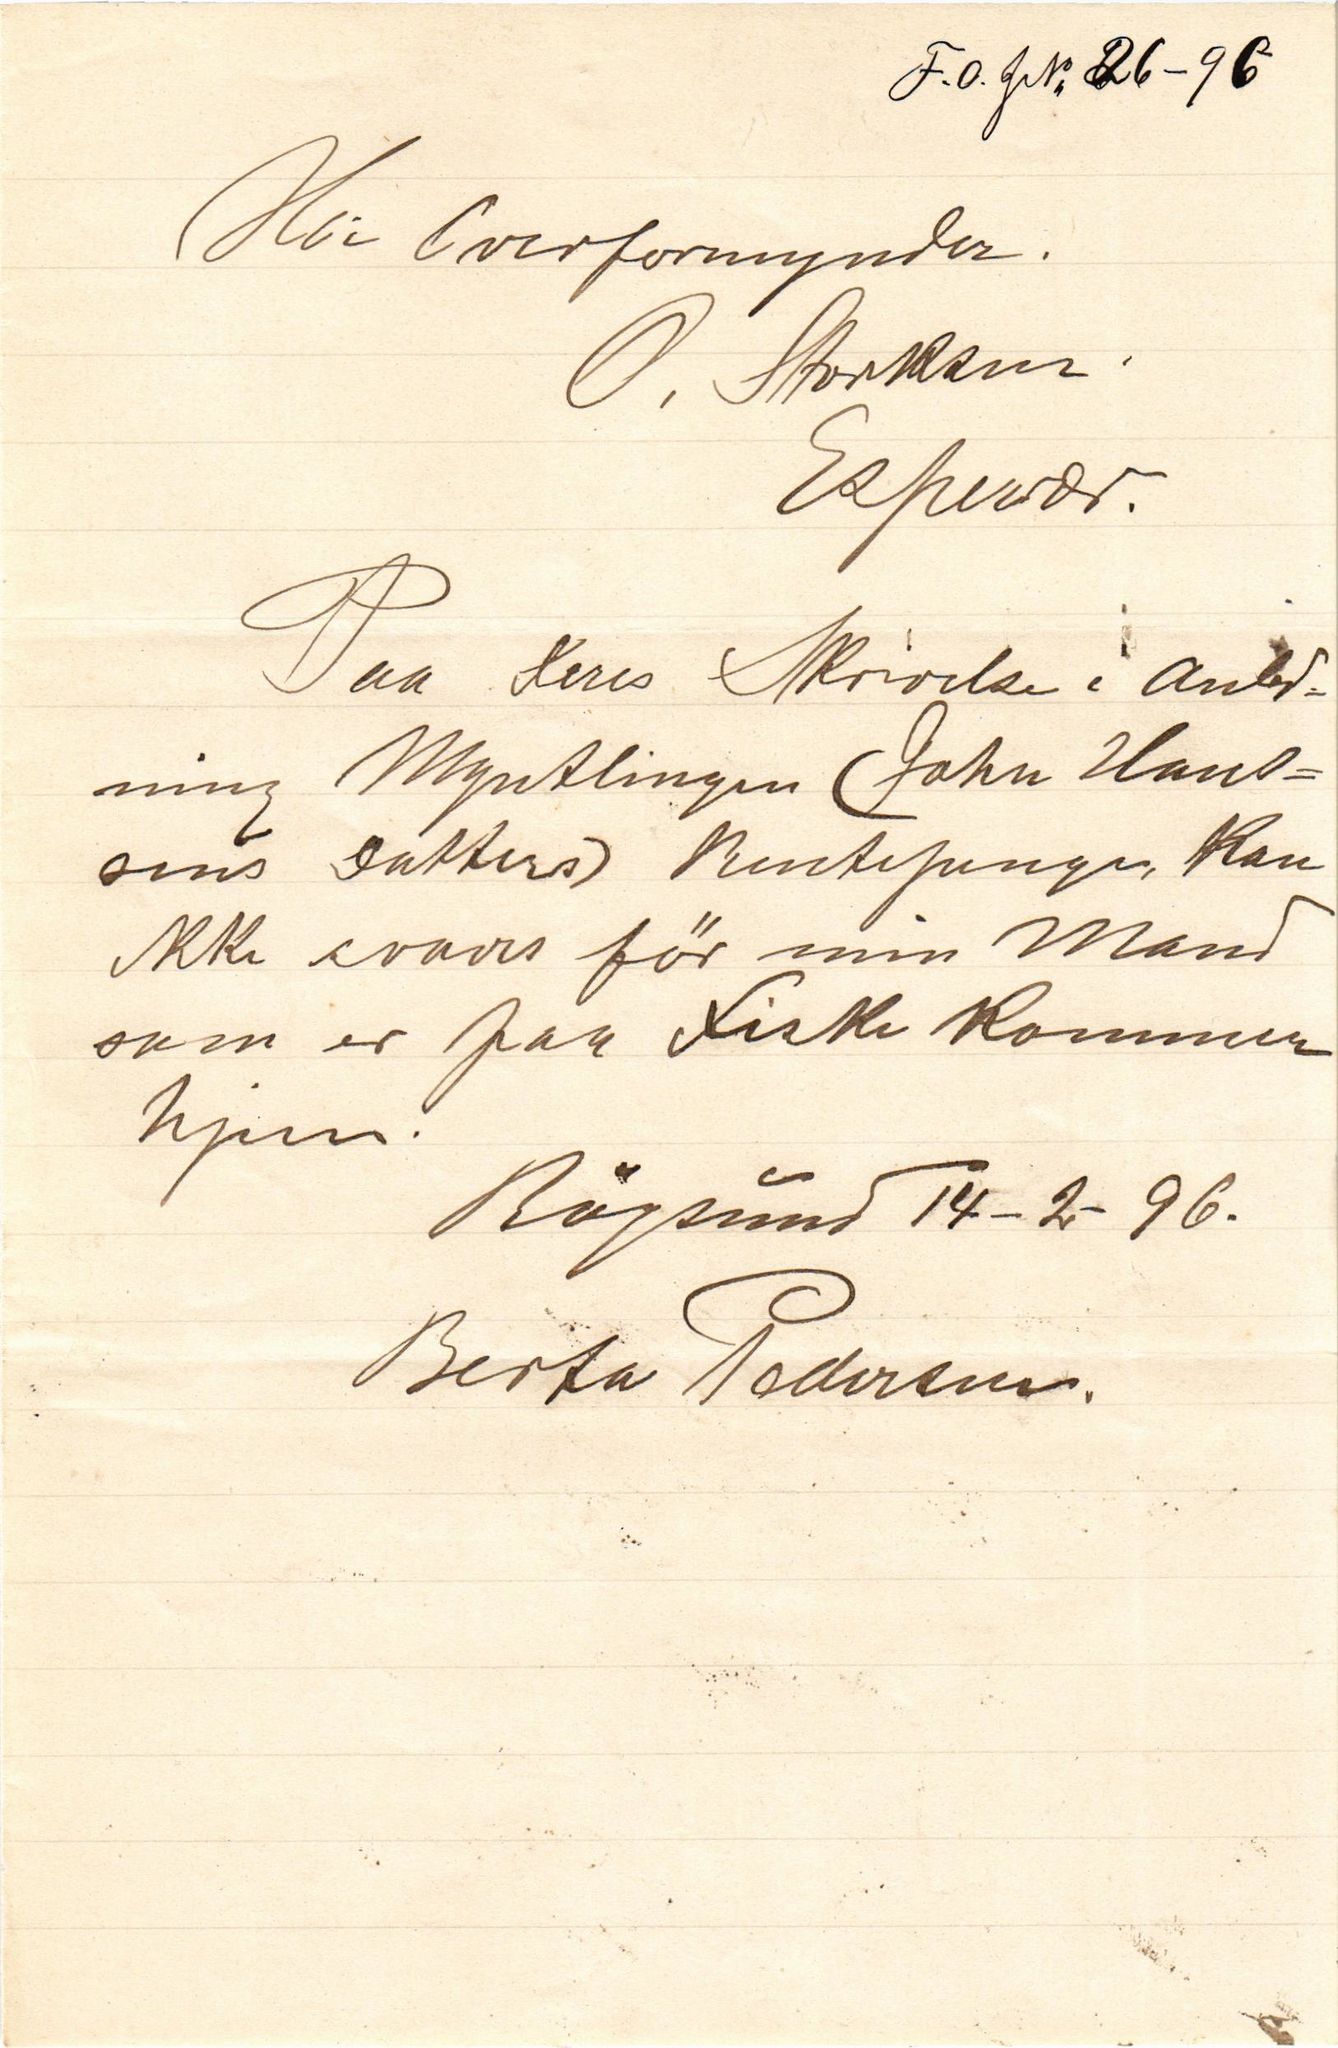 F.O. J.No. 26-96
Hr. Overformynder.
O. Storksen.
Espevær.
Paa Deres Skrivelse i Anled=
ning Myntlingen (John Hans=
sens Datters) Rentepenge, kan
ikke svares för min Mand
som er paa Fiske kommer
hjem.
Rögsund 14-2-96.
Berta Pedersen.